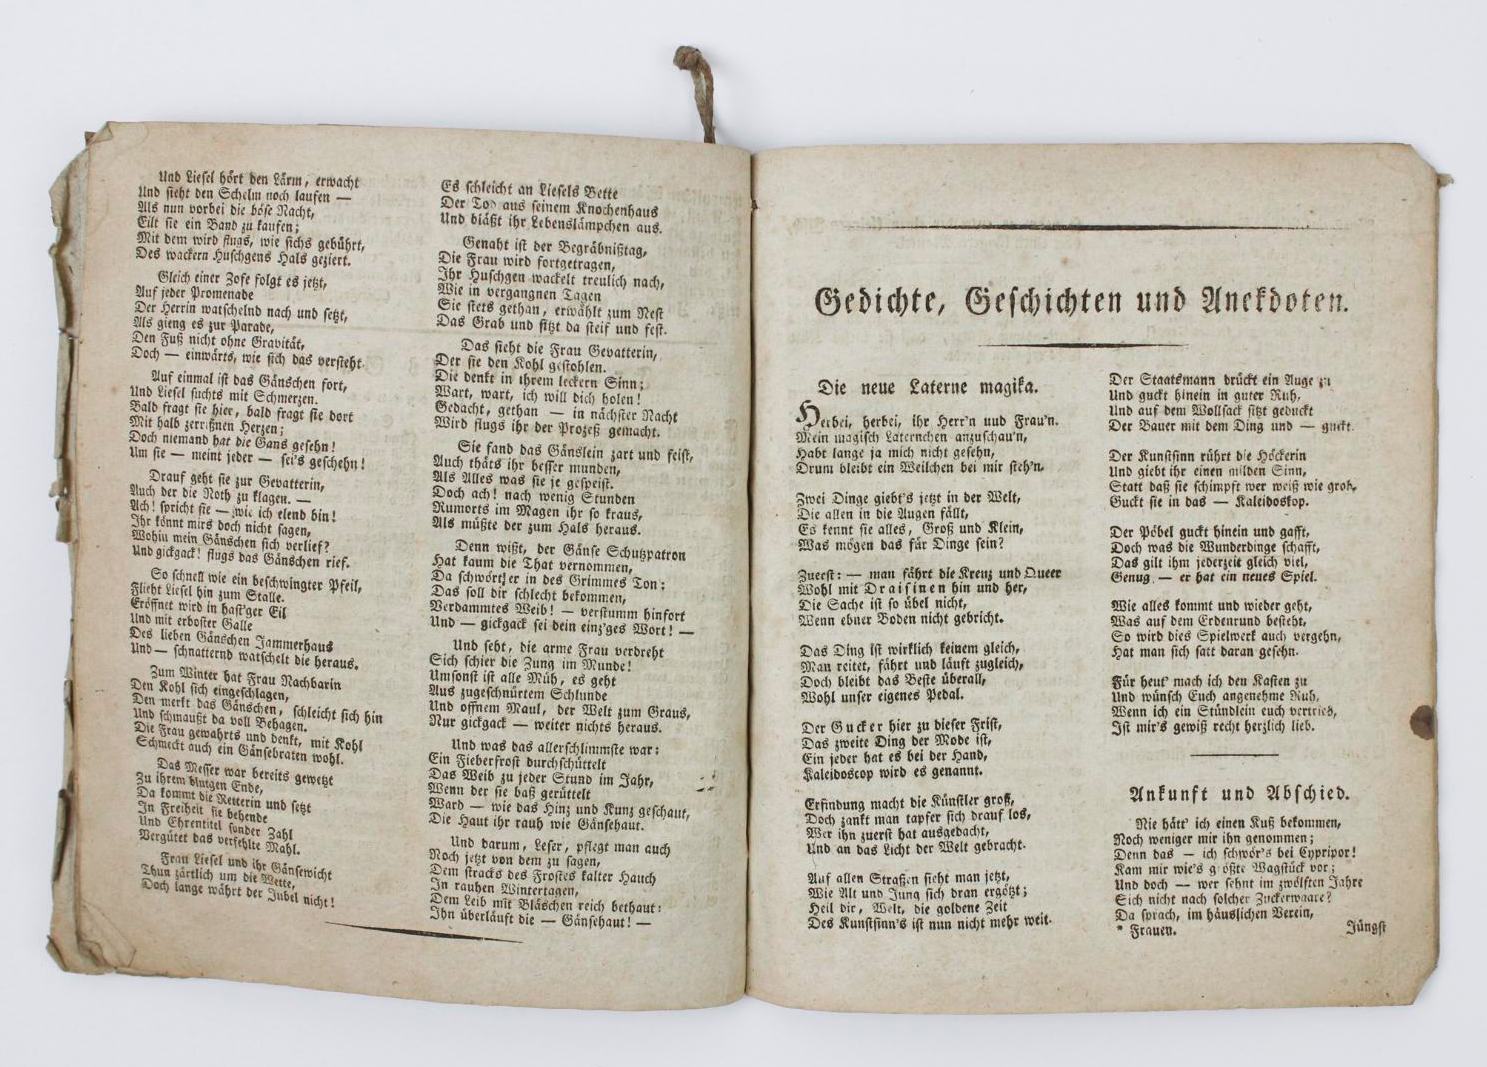 Und Liesel hört den Lärm, erwacht
Und sieht den Schelm noch laufen —
Als nun vorbei die böse Nacht,
Eilt sie ein Band zu kaufen;
Mit dem wird flugs, wie sichs gebührt,
Des wackern Huschgens Hals geziert.
Gleich einer Zofe folgt es jetzt,
Auf jeder Promenade
Der Herrin watschelnd nach und setzt,
Als gieng es zur Parade,
Den Fuß nicht ohne Gravität,
Doch — einwärts, wie sich das versteht.
Auf einmal ist das Gänschen fort,
Und Liesel suchts mit Schmerzen.
Bald fragt sie hier, bald fragt sie dort
Mit halb zerrißnen Herzen;
Doch niemand hat die Gans gesehn!
Um sie — meint jeder — sei's geschehn!
Drauf geht sie zur Gevatterin,
Auch der die Noth zu klagen. —
Ach! spricht sie — wie ich elend bin!
Ihr könnt mirs doch nicht sagen,
Wohin mein Gänschen sich verlief?
Und gickgack! flugs das Gänschen rief.
So schnell wie ein beschwingter Pfeil,
Flieht Liesel hin zum Stalle.
Eröffnet wird in hast'ger Eil
Und mit erboster Galle
Des lieben Gänschen Jammerhaus
Und — schnatternd watschelt die heraus.
Zum Winter hat Frau Nachbarin
Den Kohl sich eingeschlagen,
Den merkt das Gänschen, schleicht sich hin
Und schmaußt da voll Behagen.
Die Frau gewahrts und denkt, mit Kohl
Schmeckt auch ein Gänsebraten wohl.
Das Messer war bereits gewetzt
Zu ihrem blutgen Ende,
Da kommt die Retterin und setzt
In Freiheit sie behende
Und Ehrentitel sonder Zahl
Vergütet das verfehlte Mahl.
Frau Liesel und ihr Gänsewicht
Thun zärtlich um die Wette,
Doch lange währt der Jubel nicht!
Es schleicht an Liesels Bette
Der Tod aus seinem Knochenhaus
Und bläßt ihr Lebenslämpchen aus.
Genaht ist der Begräbnißtag,
Die Frau wird fortgetragen,
Ihr Huschgen wackelt treulich nach,
Wie in vergangnen Tagen
Sie stets gethan, erwählt zum Nest
Das Grab und sitzt da steif und fest.
Das sieht die Frau Gevatterin,
Der sie den Kohl gestohlen.
Die denkt in ihrem leckern Sinn;
Wart, wart, ich will dich holen!
Gedacht, gethan — in nächster Nacht
Wird flugs ihr der Prozeß gemacht.
Sie fand das Gänslein zart und feist,
Auch thäts ihr besser munden,
Als Alles was sie je gespeist.
Doch ach! nach wenig Stunden
Rumorts im Magen ihr so kraus,
Als müßte der zum Hals heraus.
Denn wißt, der Gänse Schutzpatron
Hat kaum die That vernommen,
Da schwört er in des Grimmes Ton:
Das soll dir schlecht bekommen,
Verdammtes Weib! — verstumm hinfort
Und — gickgack sei dein einz'ges Wort! —
Und seht, die arme Frau verdreht
Sich schier die Zung im Munde!
Umsonst ist alle Müh, es geht
Aus zugeschnürtem Schlunde
Und offnem Maul, der Welt zum Graus,
Nur gickgack — weiter nichts heraus.
Und was das allerschlimmste war:
Ein Fieberfrost durchschüttelt
Das Weib zu jeder Stund im Jahr,
Wenn der sie baß gerüttelt
Ward — wie das Hinz und Kunz geschaut,
Die Haut ihr rauh wie Gänsehaut.
Und darum, Leser, pflegt man auch
Noch jetzt von dem zu sagen,
Dem stracks des Frostes kalter Hauch
In rauhen Wintertagen,
Dem Leib mit Bläschen reich bethaut:
Ihn überläuft die — Gänsehaut! —
Gedichte, Geschichten und Anekdoten.
Die neue Laterne magika.
Herbei, herbei, ihr Herr'n und Frau'n.
Mein magisch Laternchen anzuschau'n,
Habt lange ja mich nicht gesehn,
Drum bleibt ein Weilchen bei mir steh'n.
Zwei Dinge giebt's jetzt in der Welt,
Die allen in die Augen fällt,
Es kennt sie alles, Groß und Klein,
Was mögen das für Dinge sein?
Zuerst: — man fährt die Kreuz und Queer
Wohl mit Draisinen hin und her,
Die Sache ist so übel nicht,
Wenn ebner Boden nicht gebricht.
Das Ding ist wirklich keinem gleich,
Man reitet, fährt und läuft zugleich,
Doch bleibt das Beste überall,
Wohl unser eigenes Pedal.
Der Gucker hier zu dieser Frist,
Das zweite Ding der Mode ist,
Ein jeder hat es bei der Hand,
Kaleidoscop wird es genannt.
Erfindung macht die Künstler groß,
Doch zankt man tapfer sich drauf los,
Wer ihn zuerst hat ausgedacht,
Und an das Licht der Welt gebracht.
Auf allen Straßen sieht man jetzt,
Wie Alt und Jung sich dran ergötzt;
Heil dir, Welt, die goldne Zeit
Des Kunstsinn's ist nun nicht mehr weit.
Der Staatsmann drückt ein Auge zu
Und guckt hinein in guter Ruh,
Und auf dem Wollsack sitzt geduckt
Der Bauer mit dem Ding und — guckt.
Der Kunstsinn rührt die Höckerin
Und giebt ihr einen milden Sinn,
Statt daß sie schimpft wer weiß wie grob,
Guckt sie in das — Kaleidoskop.
Der Pöbel guckt hinein und gafft,
Doch was die Wunderdinge schafft,
Das gilt ihm jederzeit gleich viel,
Genug — er hat ein neues Spiel.
Wie alles kommt und wieder geht,
Was auf dem Erdenrund besteht,
So wird dies Spielwerk auch vergehn,
Hat man sich satt daran gesehn.
Für heut' mach ich den Kasten zu
Und wünsch Euch angenehme Ruh,
Wenn ich ein Stündlein euch vertrieb,
Ist mir's gewiß recht herzlich lieb.
Ankunft und Abschied.
Nie hätt' ich einen Kuß bekommen,
Noch weniger mir ihn genommen;
Denn das — ich schwör's bei Cypripor!
Kam mir wie's größte Wagstück vor;
Und doch — wer sehnt im zwölften Jahre
Sich nicht nach solcher Zuckerwaare?
Da sprach, im häuslichen Verein,
* Frauen.
Jüngst